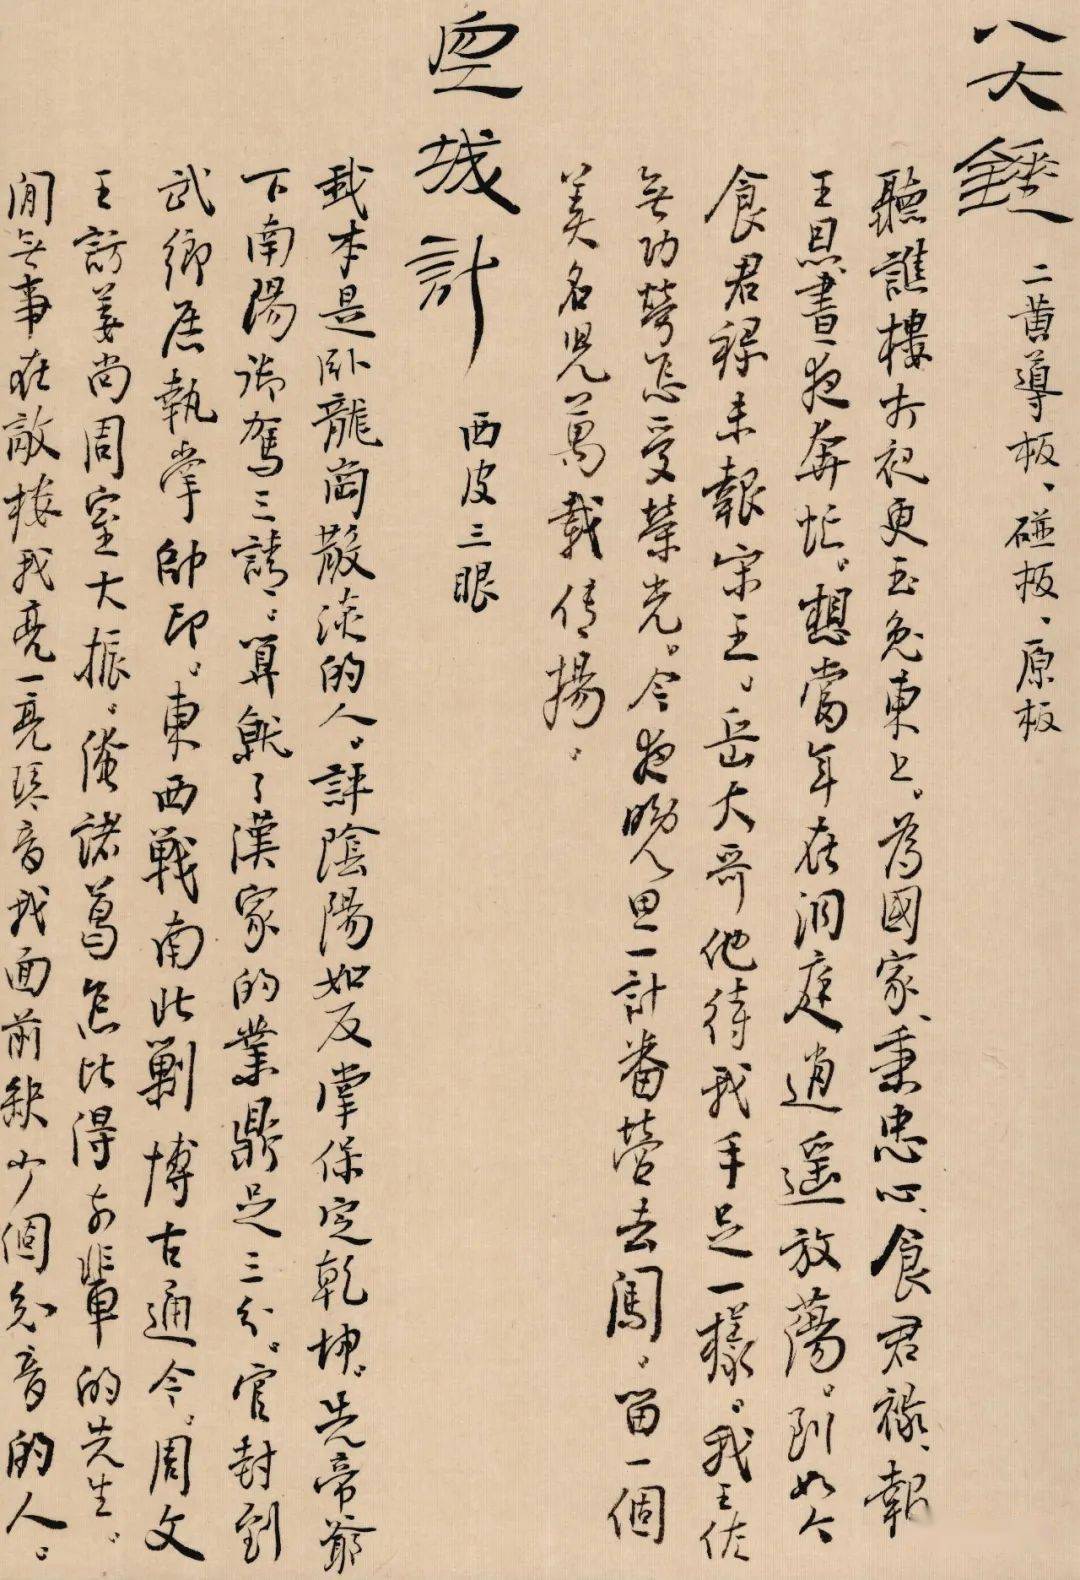 八大錘
二黄導板、碰板、原板
聽譙樓打初更玉兔東上。為國家、秉忠心、食君禄、報
王恩晝夜奔忙。想當年在洞庭逍遥放蕩。到如今
食君禄未報宋王。岳大哥他待我手足一樣。我王佐
無功勞怎受榮光。今夜晚思一計番營去闖。留一個
美名兒萬載傳揚。
空城計
西皮三眼
我本是卧龍崗散淡的人。評陰陽如反掌保定乾坤。先帝爺
下南陽御駕三請。算就了漢家的業鼎足三分。官封到
武鄉居執掌帥印。東西戰南北剿博古通今。周文
王訪姜尚周室大振。俺諸葛怎比得前輩的先生。
閒無事在敵樓我亮一亮琴音我面前缺少個知音的人。